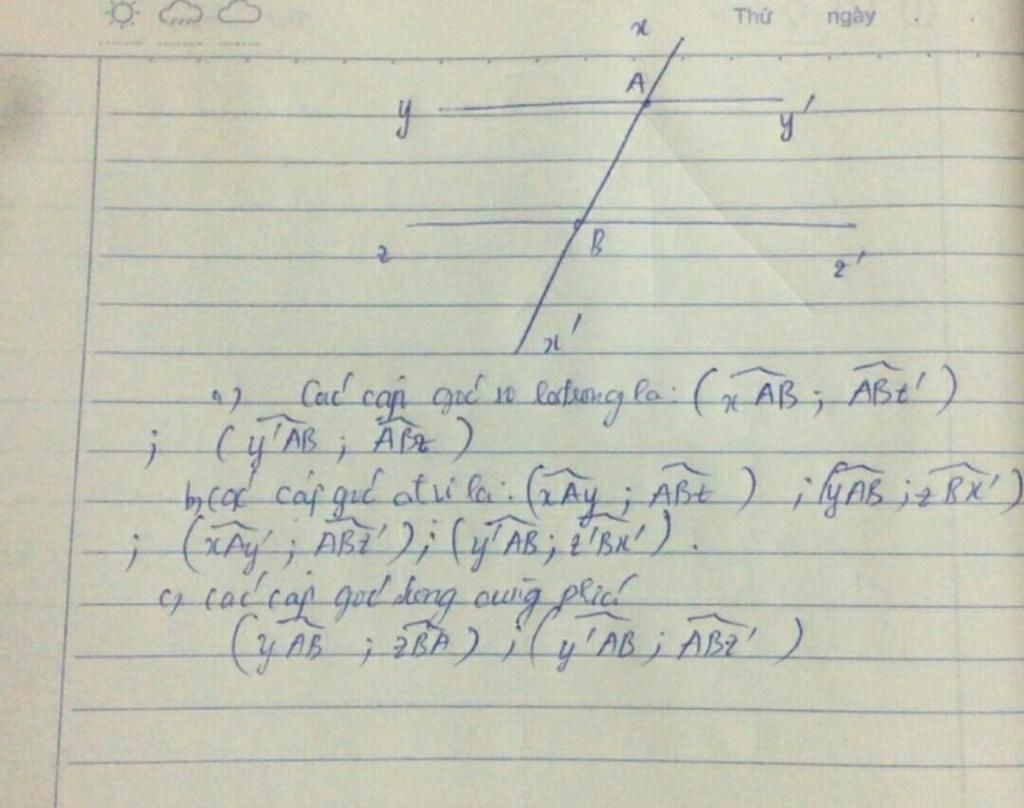 Thứ ngày
x
A
y y'
B
z z'
x'
a) Các cặp góc so le trong là: (xAB ; ABz')
; (y'AB ; ABz)
b, các cặp góc đ vị là: (xAy ; ABz) ; (yAB ; zBx')
; (xAy' ; ABz') ; (y'AB ; z'Bx') .
c, các cặp góc trong cùng phía
(yAB ; zBA) ; (y'AB ; ABz')